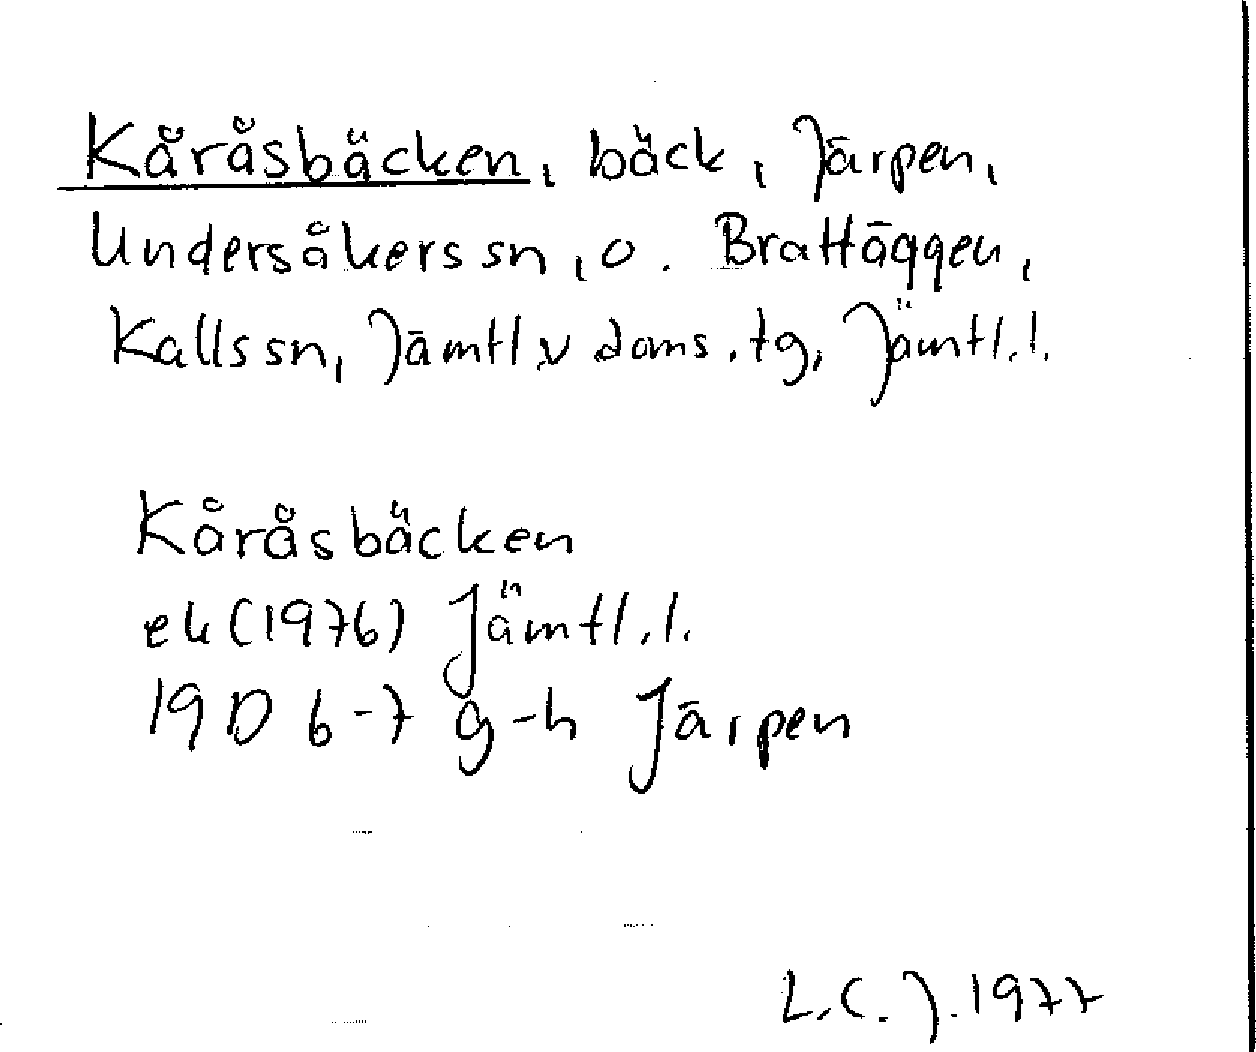 Kåråsbäcken, bäck, Järpen,
Undersåkers sn, o. Brattäggen,
Kalls sn, Jämtl v doms. tg, Jämtl.l.
Kåråsbäcken
ek (1976) Jämtl.l.
19D 6-7 g-h Järpen
L.C.J. 1977